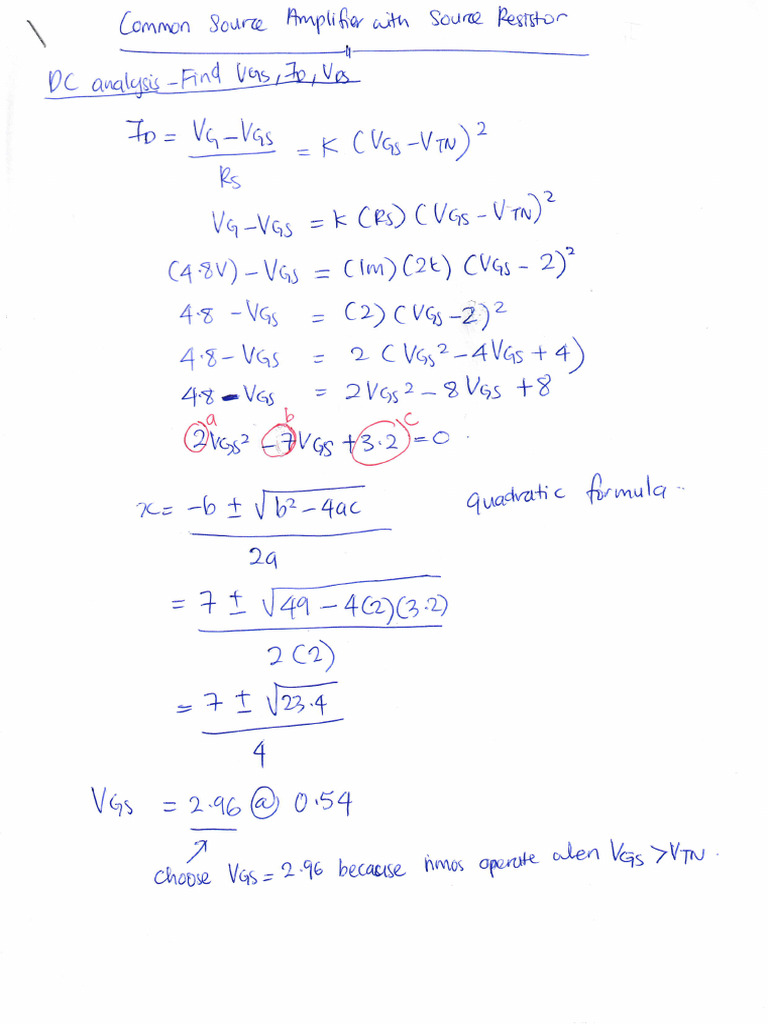 Common Source Amplifier with Source Resistor
DC analysis - Find VGS, ID, VDS
ID = VG - VGS / RS = K (VGS - VTN)²
VG - VGS = K (RS) (VGS - VTN)²
(4.8V) - VGS = (1m) (2k) (VGS - 2)²
4.8 - VGS = (2) (VGS - 2)²
4.8 - VGS = 2 (VGS² - 4VGS + 4)
4.8 - VGS = 2VGS² - 8VGS + 8
a b c
2VGS² - 7VGS + 3.2 = 0
x = -b ± √b² - 4ac / 2a quadratic formula
= 7 ± √49 - 4(2)(3.2) / 2(2)
= 7 ± √23.4 / 4
VGS = 2.96 @ 0.54
choose VGS = 2.96 because nmos operate when VGS > VTN.